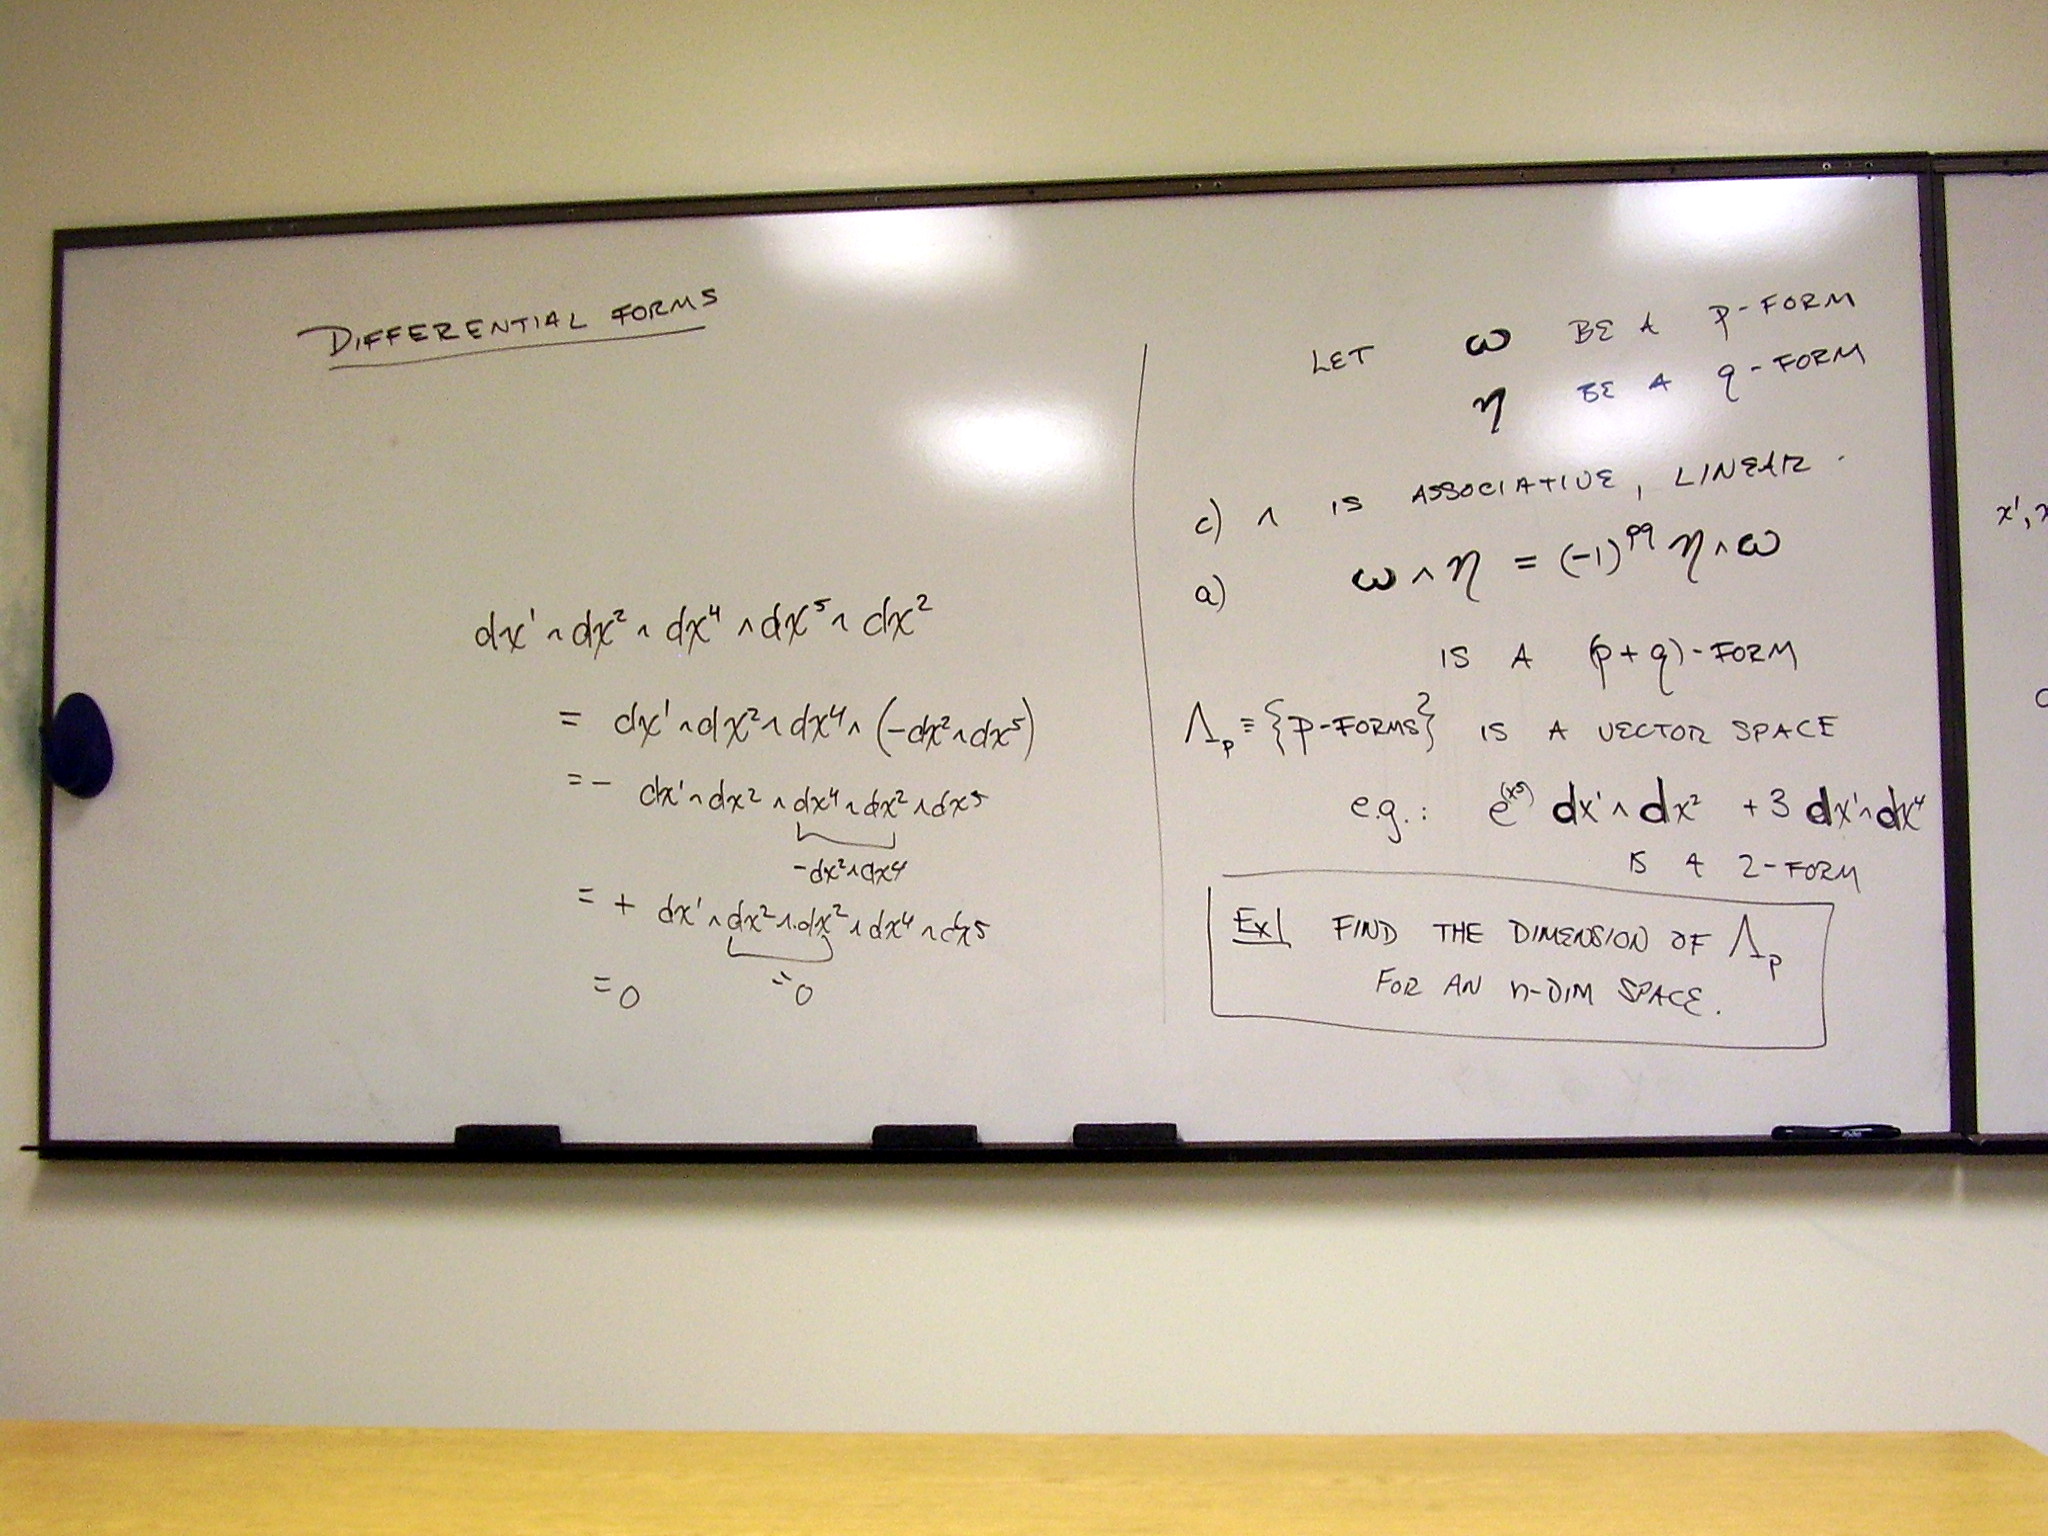 DIFFERENTIAL FORMS
dx¹ ∧ dx² ∧ dx⁴ ∧ dx⁵ ∧ dx²
= dx¹ ∧ dx² ∧ dx⁴ ∧ (-dx² ∧ dx⁵)
= - dx¹ ∧ dx² ∧ dx⁴ ∧ dx² ∧ dx⁵
-dx² ∧ dx⁴
= + dx¹ ∧ dx² ∧ dx² ∧ dx⁴ ∧ dx⁵
= 0 = 0
LET ω BE A p-FORM
η BE A q-FORM
c) ∧ IS ASSOCIATIVE, LINEAR.
a) ω ∧ η = (-1)^pq η ∧ ω
IS A (p+q)-FORM
Λp ≡ {p-FORMS} IS A VECTOR SPACE
e.g.: e^(x⁵) dx¹ ∧ dx² + 3 dx¹ ∧ dx⁴
IS A 2-FORM
Ex| FIND THE DIMENSION OF Λp
FOR AN n-DIM SPACE.
x¹,